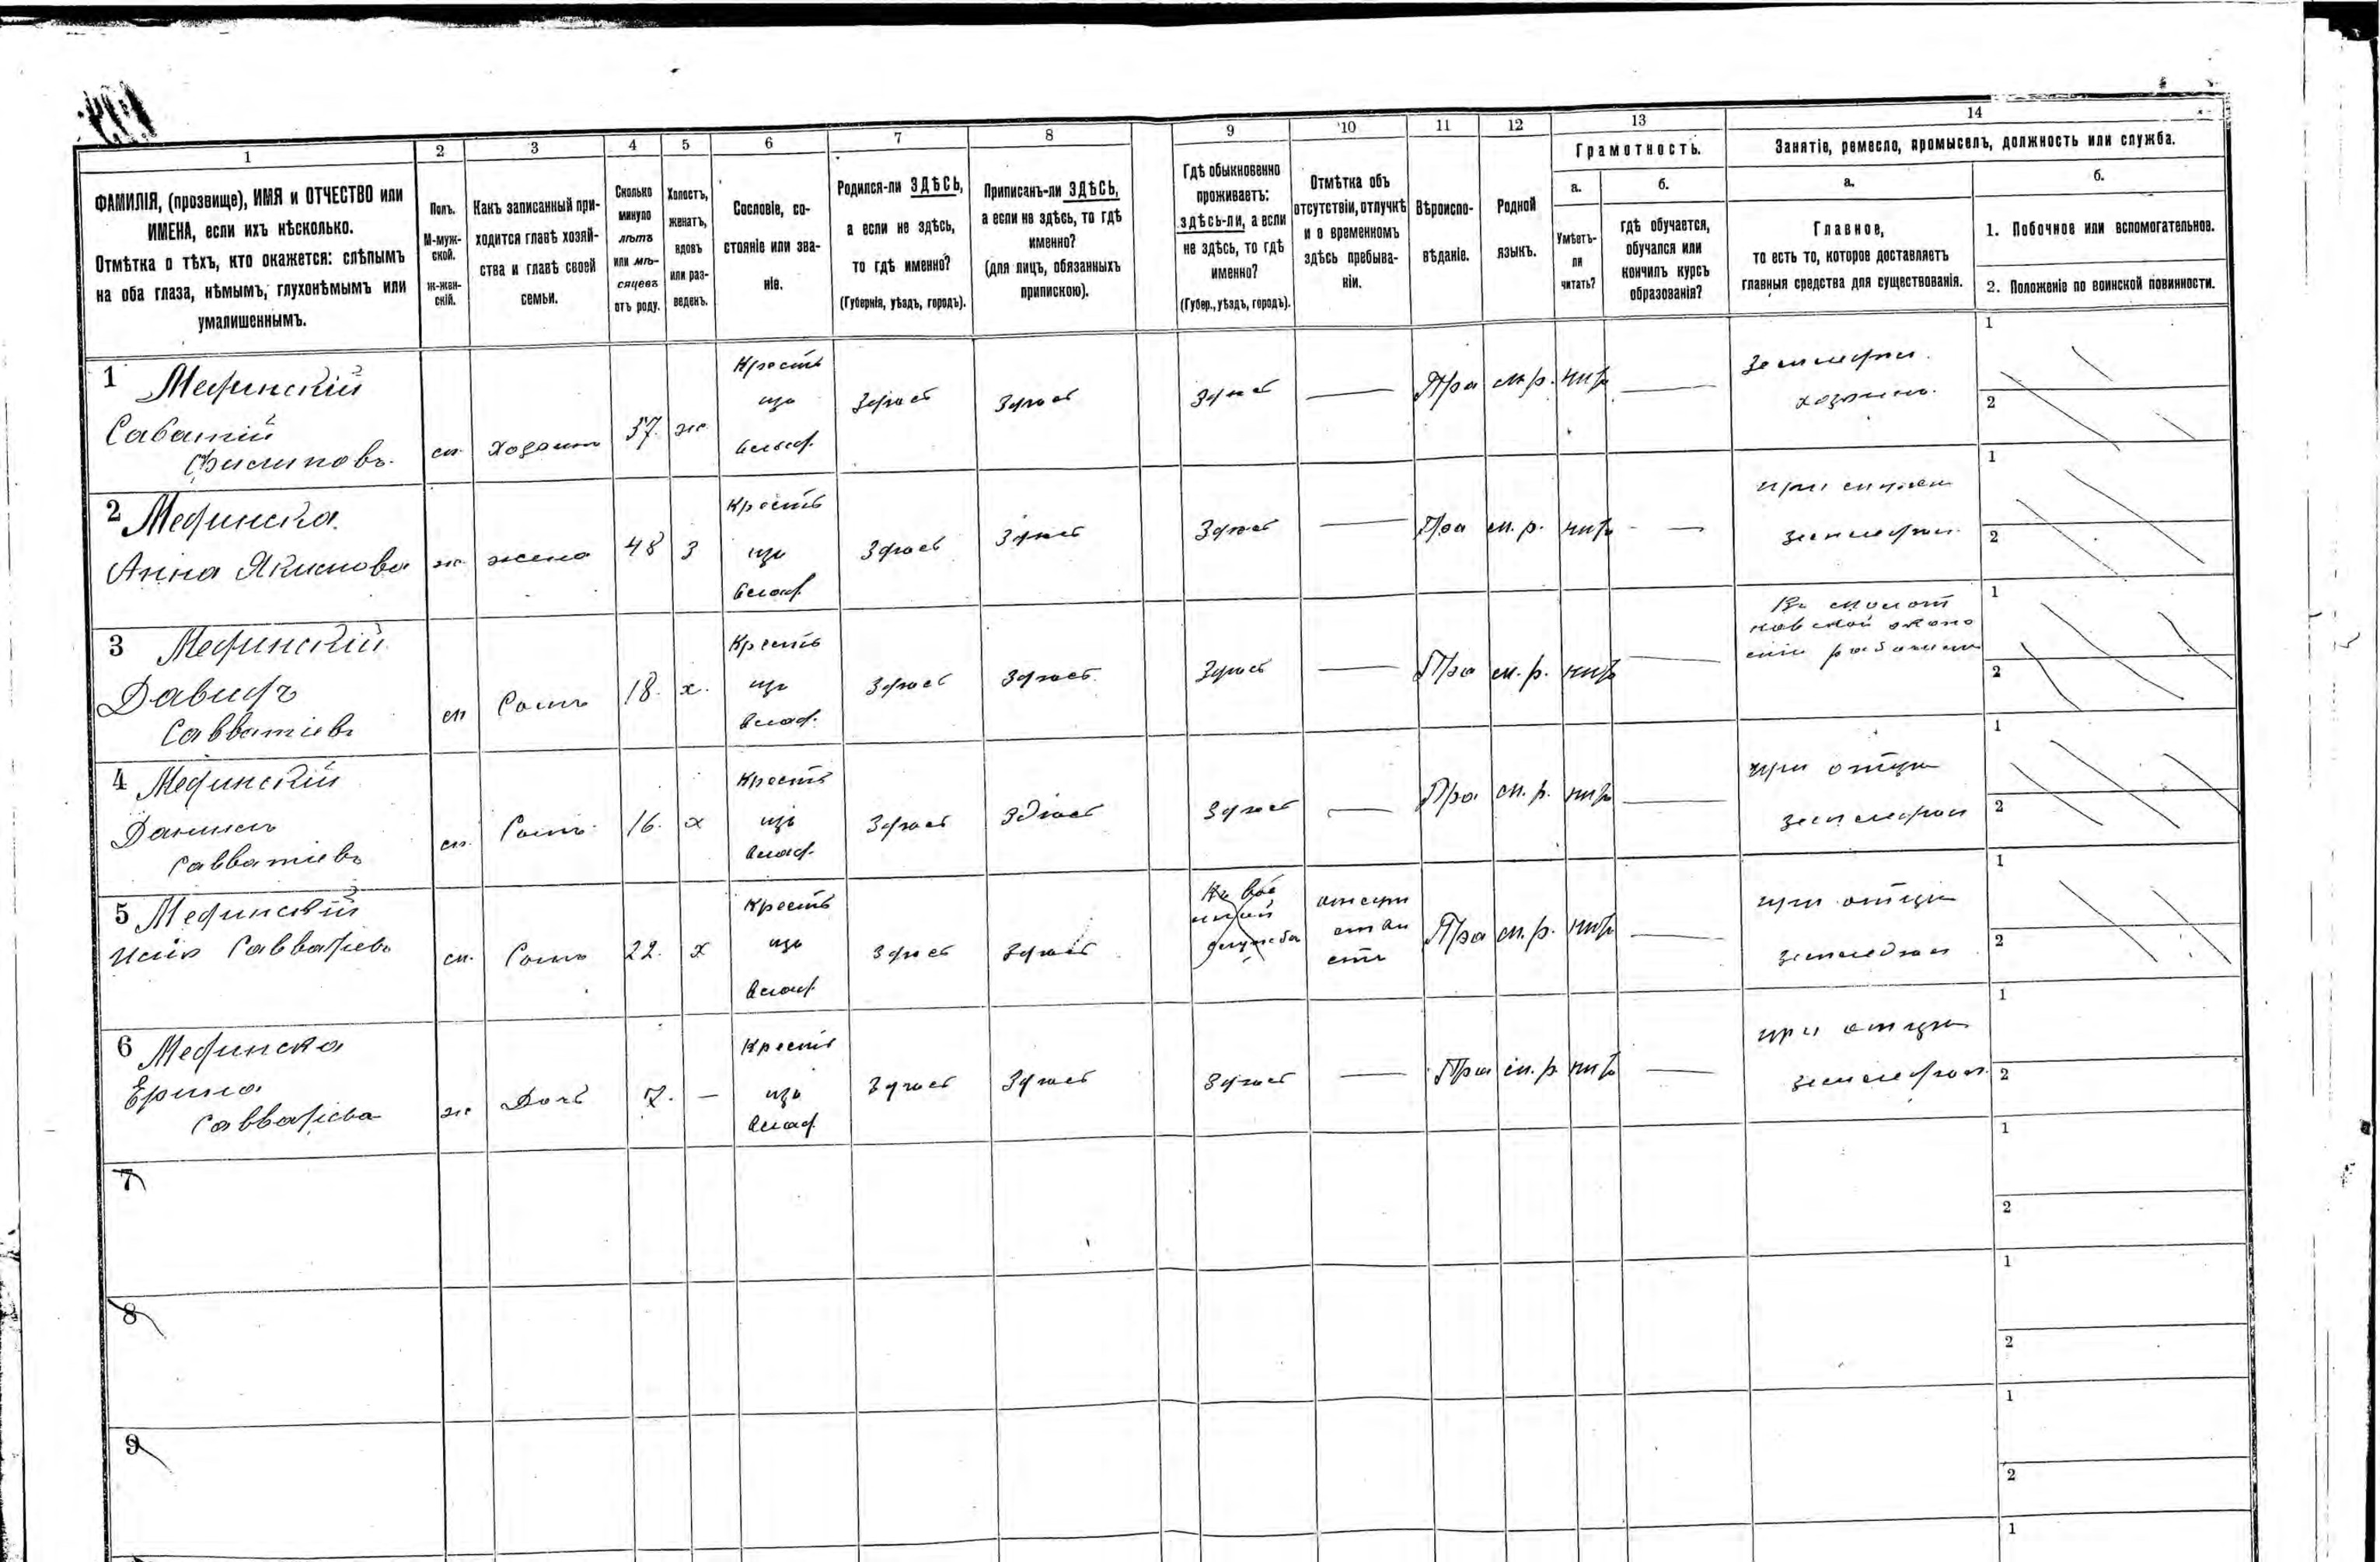 1
2
3
4
5
6
7
8
9
10
11
12
13
14
ФАМИЛІЯ, (прозвище), ИМЯ и ОТЧЕСТВО или
ИМЕНА, если ихъ нѣсколько.
Отмѣтка о тѣхъ, кто окажется: слѣпымъ
на оба глаза, нѣмымъ, глухонѣмымъ или
умалишеннымъ.
Полъ.
М-муж-
ской.
Ж-жен-
скій.
Какъ записанный при-
ходится главѣ хозяй-
ства и главѣ своей
семьи.
Сколько
минуло
лѣтъ
или мѣ-
сяцевъ
отъ роду.
Холостъ,
женатъ,
вдовъ
или раз-
веденъ.
Сословіе, со-
стояніе или зва-
ніе.
Родился-ли ЗДѢСЬ,
а если не здѣсь,
то гдѣ именно?
(Губернія, уѣздъ, городъ).
Приписанъ-ли ЗДѢСЬ,
а если не здѣсь, то гдѣ
именно?
(для лицъ, обязанныхъ
припискою).
Гдѣ обыкновенно
проживаетъ:
здѣсь-ли, а если
не здѣсь, то гдѣ
именно?
(Губер., уѣздъ, городъ).
Отмѣтка объ
отсутствіи, отлучкѣ
и о временномъ
здѣсь пребыва-
ніи.
Вѣроиспо-
вѣданіе.
Родной
языкъ.
Грамотность.
а.
Умѣетъ-
ли
читать?
б.
гдѣ обучается,
обучался или
кончилъ курсъ
образованія?
Занятіе, ремесло, промыселъ, должность или служба.
а.
Главное,
то есть то, которое доставляетъ
главныя средства для существованія.
б.
1. Побочное или вспомогательное.
2. Положеніе по воинской повинности.
1 Мединскій
Саватій
Филиповъ.
м. Хозяин 57. ж
Кресть
изъ
влад.
Здесь Здесь Здесь — Пра м.р. нитъ —
земледел.
хозяинъ.
1
2
2 Мединска.
Анна Якимова
ж. жена 48 з
Кресть
изъ
влад.
Здесь Здесь Здесь — Пра м.р. нитъ —
при мужен
земледел.
1
2
3 Мединскій
Давидъ
Савватіевъ
м Сынъ 18. х.
Кресть
изъ
влад.
Здесь Здесь Здесь — Пра м.р. нитъ —
1
2
4 Мединскій
Данило
Савватіевъ
м. Сынъ 16. х
Кресть
изъ
влад.
Здесь Здесь Здесь — Пра м.р. нитъ —
при отцу
земледел
1
2
5 Мединскій
Савватіевъ
м. Сынъ 22. х
Кресть
изъ
влад.
Здесь Здесь
Пра м.р. нитъ —
при отцу
земледел
1
2
6 Мединска
Ерина
Савватіева
ж Дочь 7. —
Кресть
изъ
влад
Здесь Здесь Здесь — Пра м.р. нитъ —
при отцу
земледел.
1
2
7
1
2
8
1
2
9
1
2
1